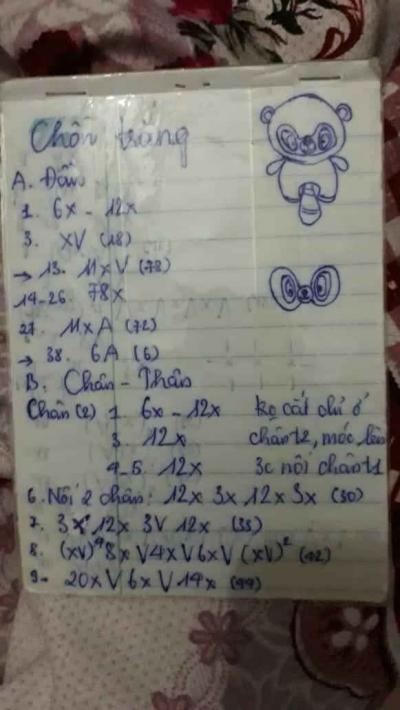 Chồn trắng
A. Đầu
1. 6x - 12x
3. XV (18)
→ 13. 11xV (78)
14-26. 78x
27. 11xA (72)
→ 38. 6A (6)
B. Chân - Thân
Chân (2) 1. 6x - 12x ko cắt chỉ ở
3. 12x chân t2, móc lên
4-5. 12x 3c nối chân t1
6. Nối 2 chân: 12x 3x 12x 3x (30)
7. 3x 12x 3V 12x (33)
8. (xV) 8x V4xV6xV (xV)² (42)
9- 20xV6xV14x (44)